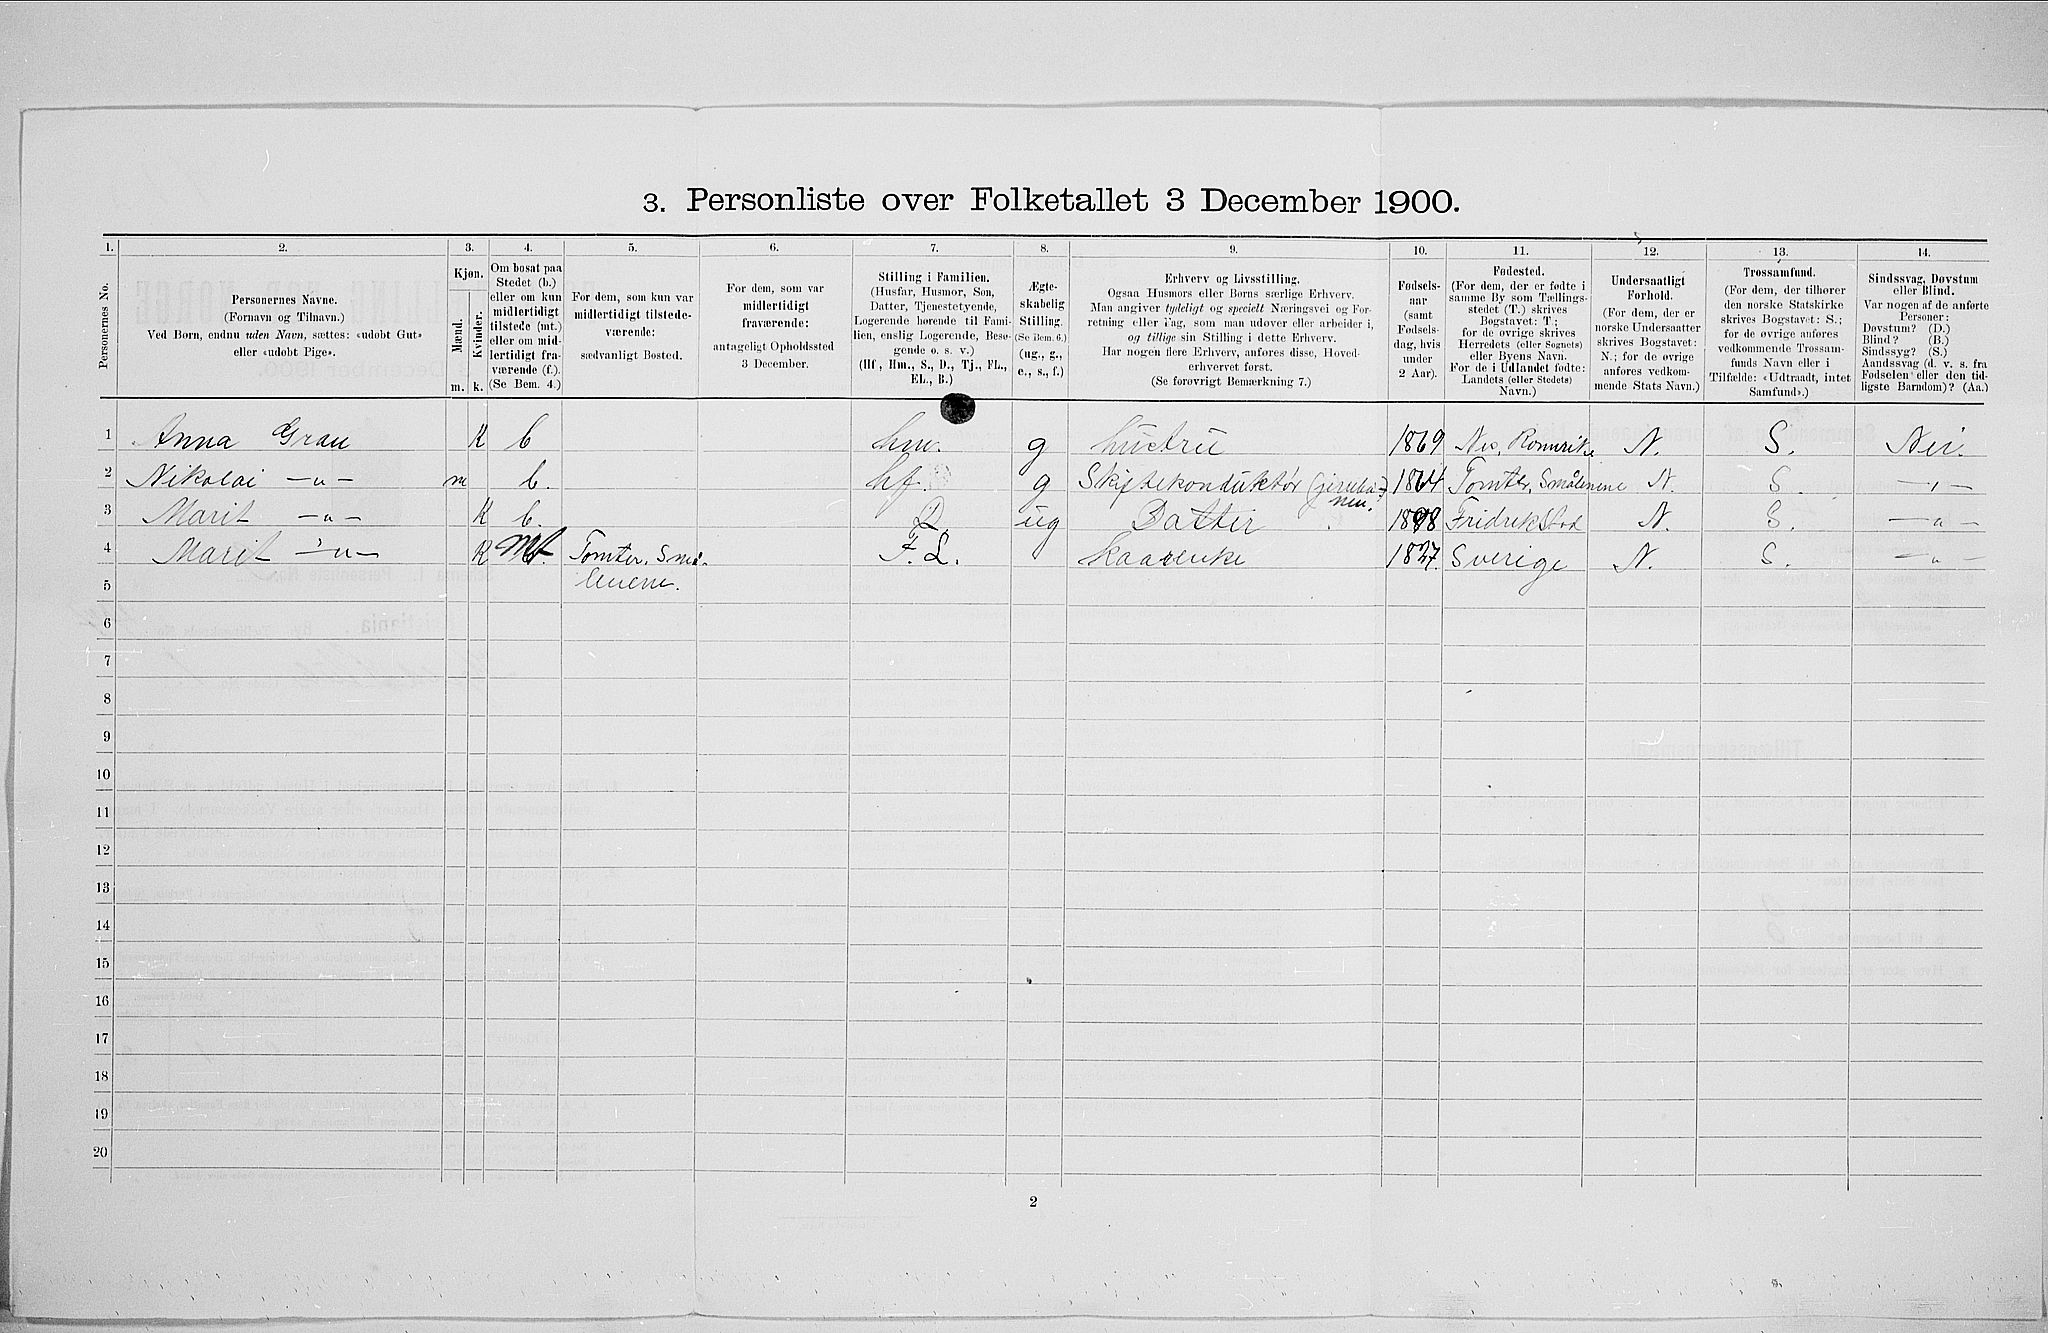 3. Personliste over Folketallet 3 December 1900.
1. 2. 3. 4. 5. 6. 7. 8. 9. 10. 11. 12. 13. 14.
Personernes No.
Personernes Navne.
(Fornavn og Tilnavn.)
Ved Børn, endnu uden Navn, sættes: «udøbt Gut»
eller «udøbt Pige».
Kjøn.
Mænd.
Kvinder.
m. k.
Om bosat paa
Stedet (b.)
eller om kun
midlertidigt
tilstede (mt.)
eller om mid-
lertidigt fra-
værende (f.).
(Se Bem. 4.)
For dem, som kun var
midlertidigt tilstede-
værende:
sædvanligt Bosted.
For dem, som var
midlertidigt
fraværende:
antageligt Opholdssted
3 December.
Stilling i Familien.
(Husfar, Husmor, Søn,
Datter, Tjenestetyende,
Logerende hørende til Fami-
lien, enslig Logerende, Besø-
gende o. s. v.)
(Hf., Hm., S., D., Tj., FL.,
EL., B.)
Ægte-
skabelig
Stilling.
(Se Bem. 6.)
(ug., g.,
e., s., f.)
Erhverv og Livsstilling.
Ogsaa Husmors eller Børns særlige Erhverv.
Man angiver tydeligt og specielt Næringsvei og For-
retning eller Fag, som man udøver eller arbeider i,
og tillige sin Stilling i dette Erhverv.
Har nogen flere Erhverv, anføres disse, Hoved-
erhvervet først.
(Se forøvrigt Bemærkning 7.)
Fødsels-
aar
(samt
Fødsels-
dag, hvis
under
2 Aar).
Fødested.
(For dem, der er fødte i
samme By som Tællings-
stedet (T.) skrives
Bogstavet: T.;
for de øvrige skrives
Herredets (eller Sognets)
eller Byens Navn.
For de i Udlandet fødte:
Landets (eller Stedets)
Navn.)
Undersaatligt
Forhold.
(For dem, der er
norske Undersaatter
skrives Bogstavet:
N.; for de øvrige
anføres vedkom-
mende Stats Navn.)
Trossamfund.
(For dem, der tilhører
den norske Statskirke
skrives Bogstavet: S.;
for de øvrige anføres
vedkommende Trossam-
funds Navn eller i
Tilfælde: «Udtraadt, intet
Samfund».)
Sindssvag, Døvstum
eller Blind.
Var nogen af de anførte
Personer:
Døvstum? (D.)
Blind? (B.)
Sindssyg? (S.)
Aandssvag (d. v. s. fra
Fødselen eller den tid-
ligste Barndom)? (Aa.)
1 Anna Grau K b hm. g hustru 1869 Nes, Romrike N. S. Nei.
2 Nikolai —"— m b. hf. g Skiftekonduktør 1864 Tomter, Smålenene N. S. —"—
3 Marit —"— K b. D. ug Datter 1898 Fridrikstad N. S. —"—
4 Marit —"— K Mt. Tomter, Små- F. L. kaarenke 1827. Sverige N. S. —"—
lenene.
5
6
7
8
9
10
11
12
13
14
15
16
17
18
19
20
2